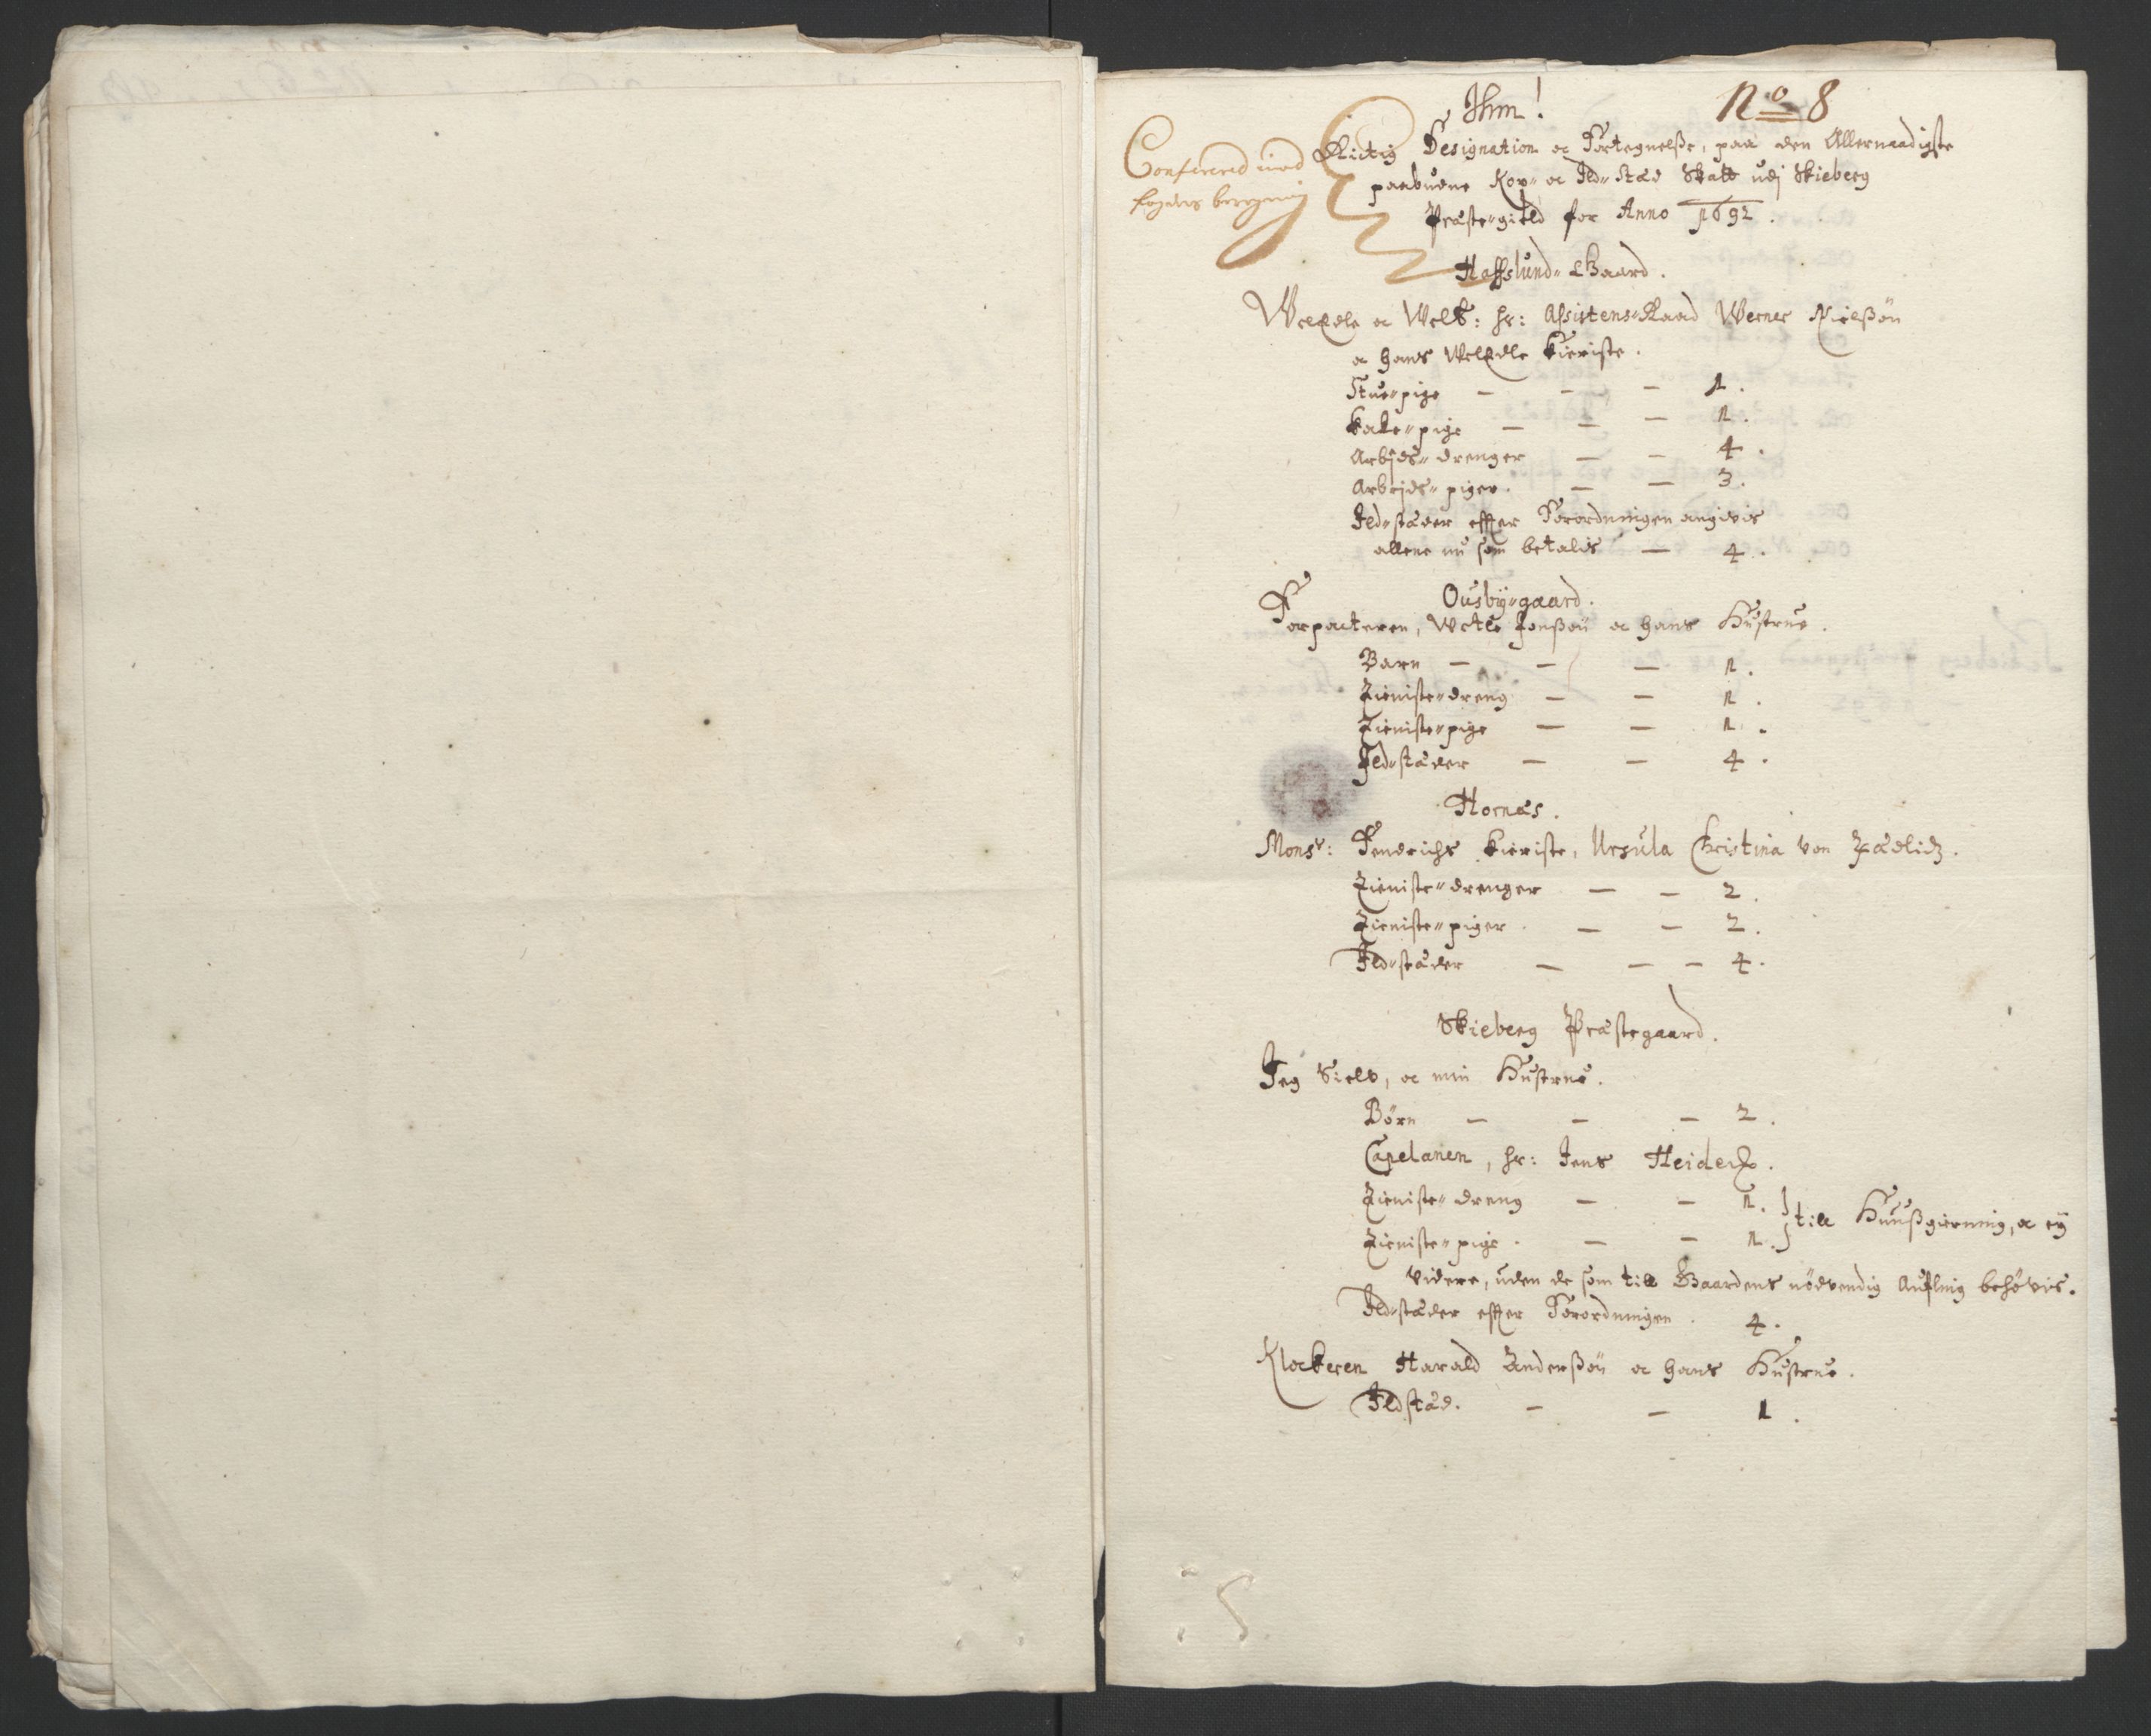 Ihm!
No 8
Confererd med
fogdens beregning
Rictig Designation oc Fortegnelsße, paa den Allernaadigste
paabudne Kop- oc Ild-stæd Skatt udj Skieberg
Præste-gield for Anno 1692.
Hafslund-Gaard.
WelEdle oc Welb: hr: Assistens-Raad Werner Nielßøn
oc hans WelEdle Kieriste.
Stue-pige — — — 1.
Kake-pige — — — 1.
Arbejds-drenger — — 4.
Arbejds-piger. — — 3.
Ild-stæder effter Forordningen angivis
allene nu som betalis — 4.
Ousbÿ-gaard.
Forpacteren, Wetle Jonßøn oc hans Hustrue.
Barn — — — 1.
Tieniste-dreng — — 1.
Tieniste-pige — — 1.
Ild-stæder — — 4.
Hornæs.
Monsr: Fendrichs Kieriste, Ursula Christina von Zædlidz.
Tieniste-drenger — — 2.
Tieniste-piger. — — 2.
Ild-stæder — — — 4.
Skieberg Præstegaard.
Jeg Sielv, oc min Hustrue.
Børn — — — 2.
Capelanen, hr: Jens Heide.
Tieniste-dreng — — 1.
Tieniste-pige. — — 1. } till Huußgierning, oc eÿ
videre, uden de som till Gaardens nødvendig Aufling behøvis.
Ild-stæder effter Forordningen. 4.
Klockeren Harald Anderßøn oc hans Hustrue.
Ildstæd. — — 1.